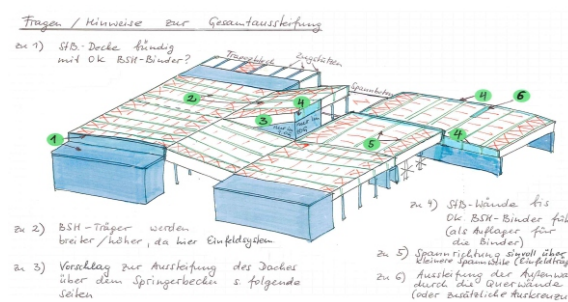 Fragen / Hinweise zur Gesamtaussteifung
zu 1) StB-Decke bündig
mit OK BSH-Binder?
Trapezblech
Zugstützen
Spannbeton
1
2
3
4
4
4
5
6
zu 2) BSH-Träger werden
breiter/höher, da hier Einfeldsystem
zu 3) Vorschlag zur Aussteifung des Daches
über dem Springerbecken s. folgende
Seiten
zu 4) StB-Wände bis
OK BSH-Binder füh
(als Auflager für
die Binder)
zu 5) Spannrichtung sinnvoll über
kleinere Spannweite (Einfeldträg
zu 6) Aussteifung der Außenwä
durch die Querwände
(oder zusätzliche Auskreuzu